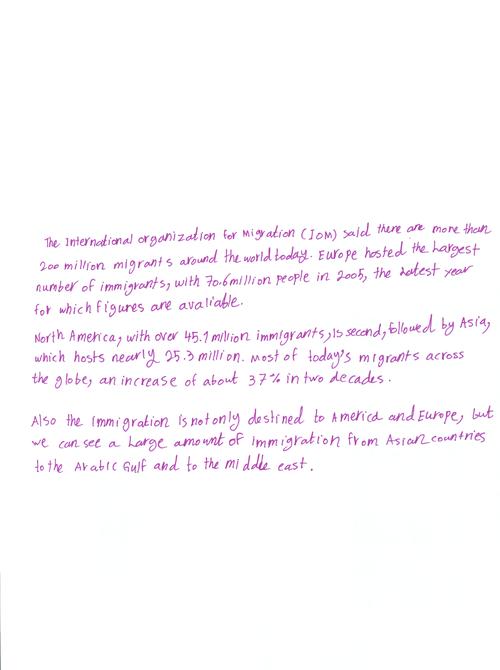 The International organization for Migration (IOM) said there are more than
200 million migrants around the world today. Europe hosted the Largest
number of immigrants, with 70.6 million people in 2005, the Latest year
for which figures are avaliable.
North America, with over 45.1 million immigrants, is second, followed by Asia,
which hosts nearly 25.3 million. Most of today's migrants across
the globe, an increase of about 37% in two decades.
Also the Immigration is not only destined to America and Europe, but
we can see a Large amount of Immigration from Asian countries
to the Arabic Gulf and to the middle east.